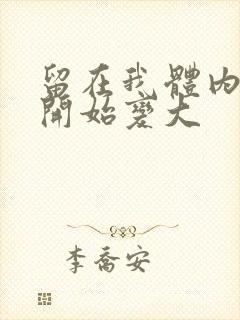 留在我體內
開始變大
李喬安